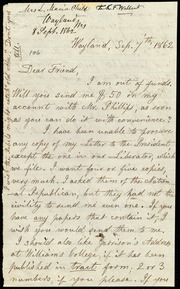 Mrs. L. Maria Child
Wayland,
8 Sept. 1862
Wayland, Sep. 7th, 1862
Dear Friend,
I am out of funds.
Will you send me $50 on my
account with Mr. Phillips, as soon
as you can do it with convenience?
I have been unable to procure
any copy of my Letter to the President,
except the one in our Liberator, which
we file. I want four or five copies,
very much. I asked them of the National
Republican, but they had not the
civility to send me even one. If
you have any papers that contain it,
I wish you would send them to me.
I should also like Garrison's Address
at Williams College, if it has been
published in tract form; 2 or 3
numbers, if you please. If you